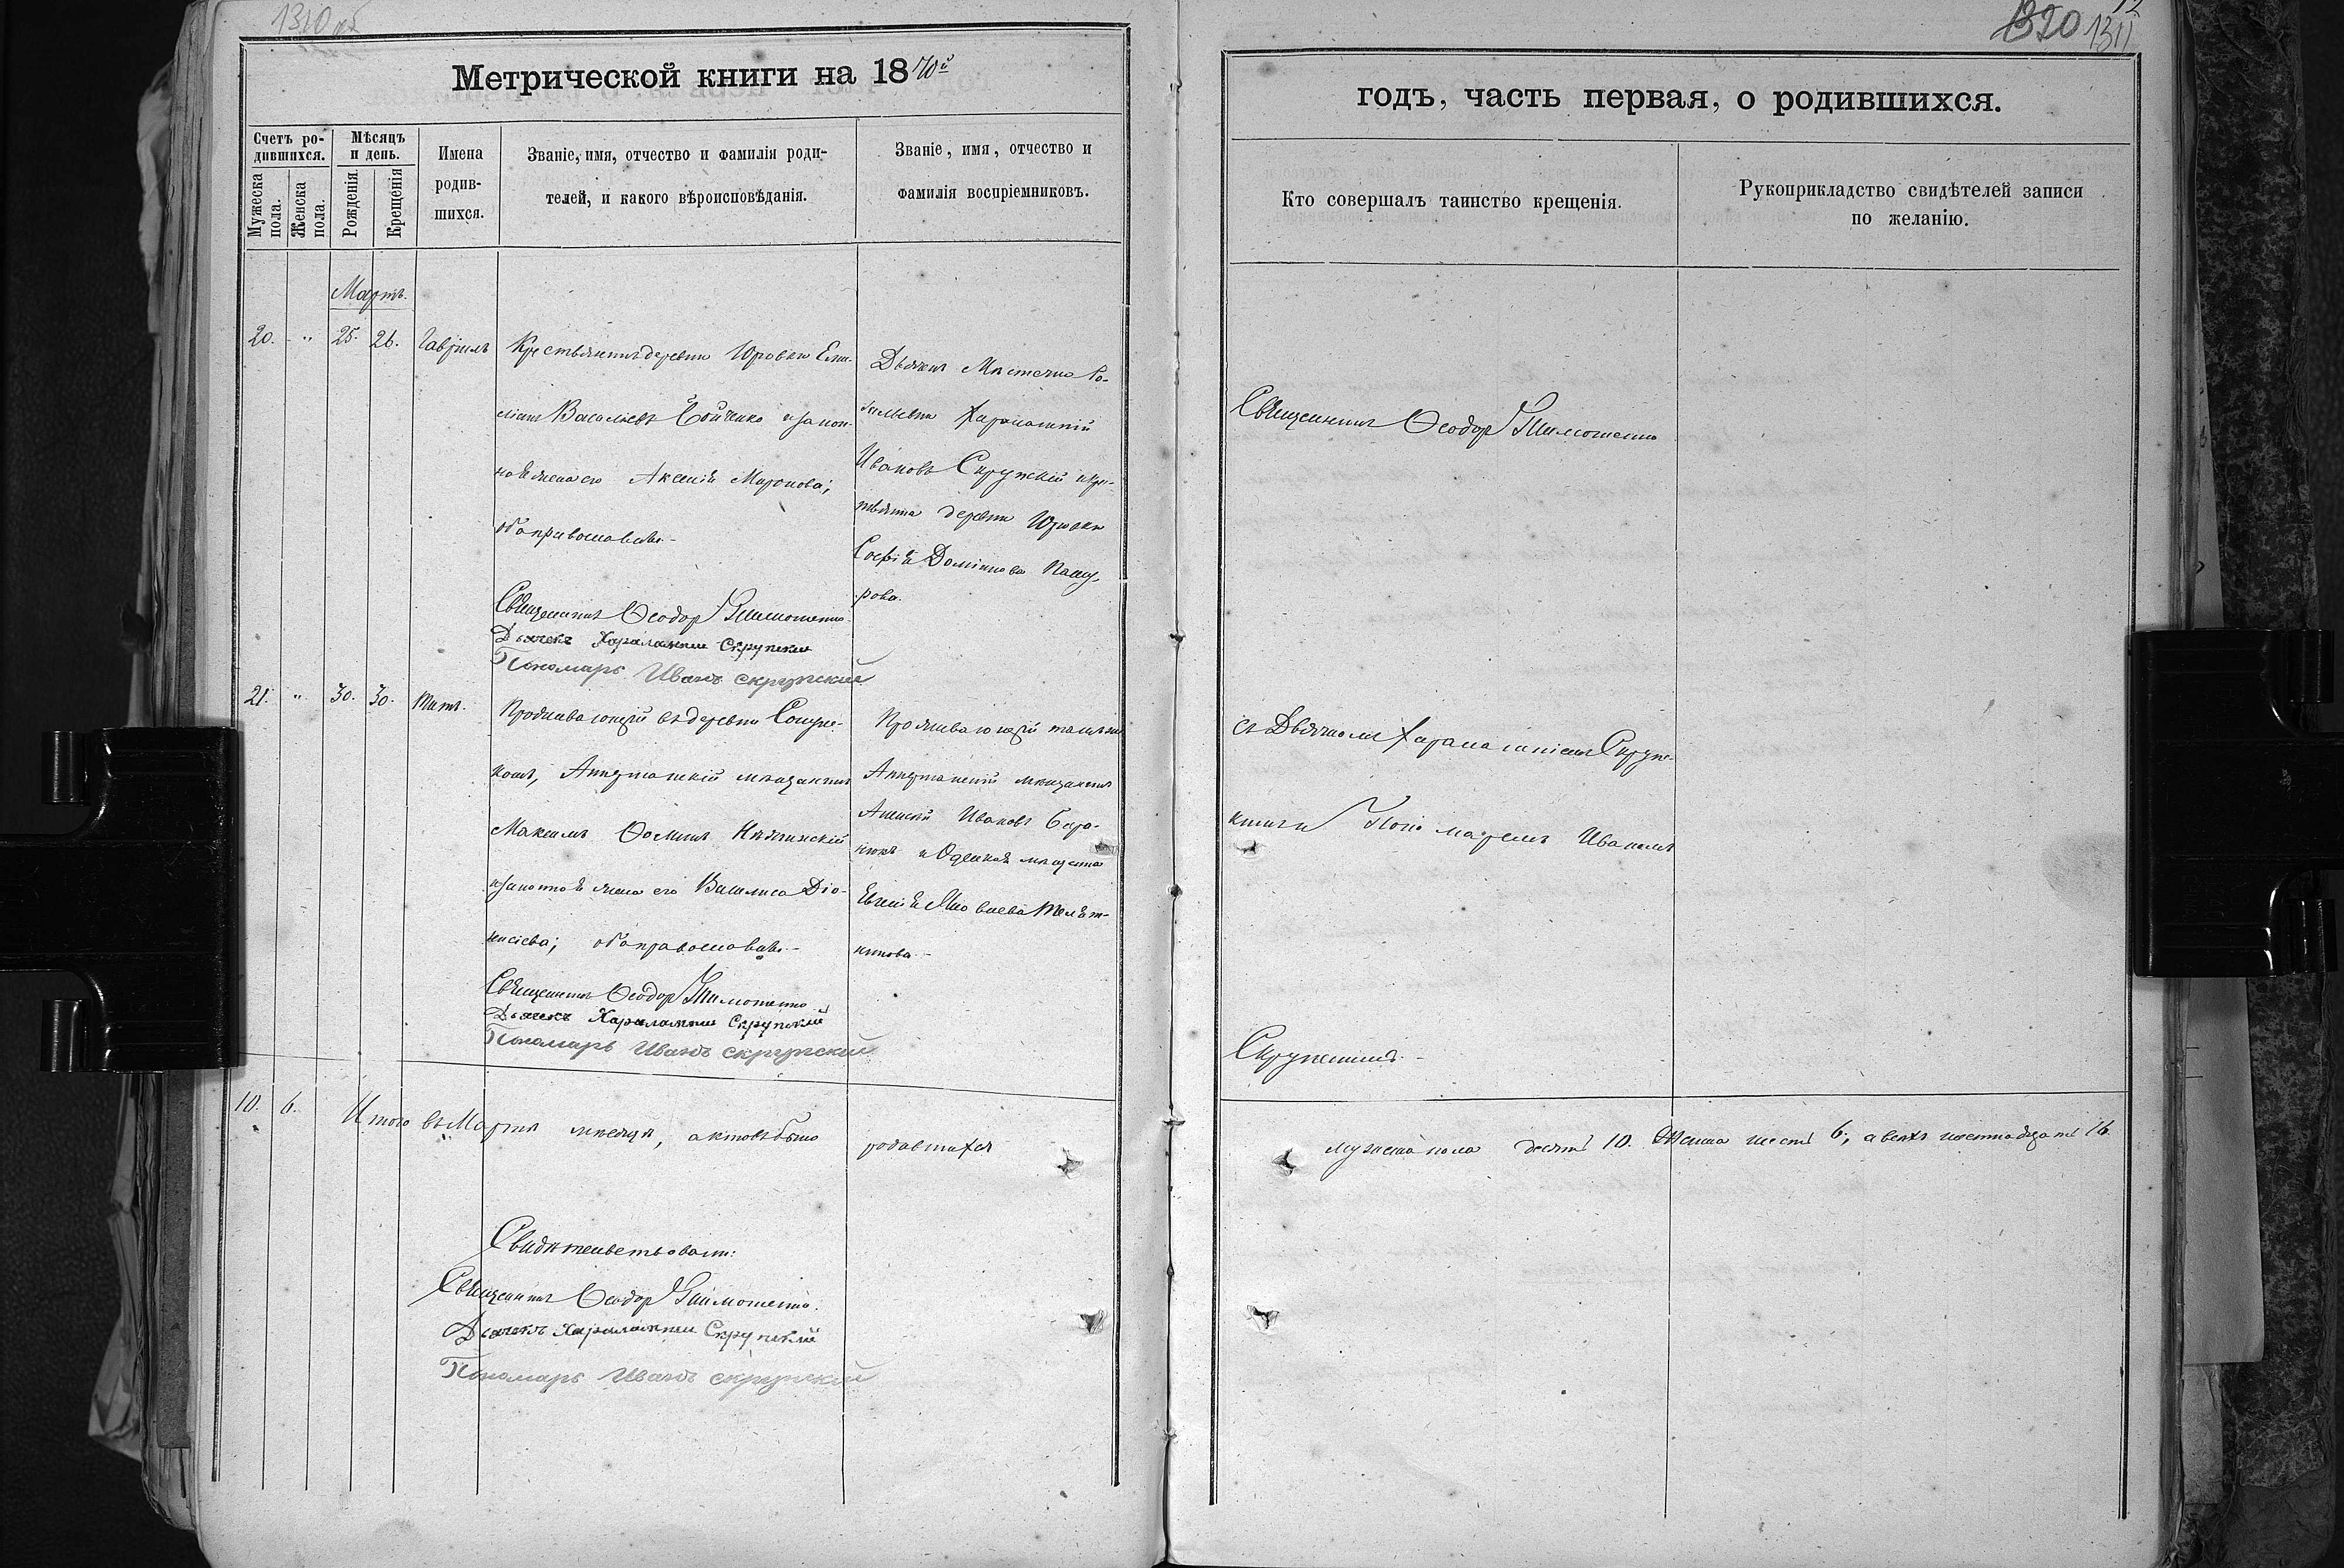 1310 об
320 1311
Метрической книги на 1870й
годъ, часть первая, о родившихся.
Счетъ ро-
дившихся.
Мужеска пола.
Женска пола.
Мѣсяцъ
и день.
Рожденія.
Крещенія
Имена
родив-
шихся.
Званіе, имя, отчество и фамилія роди-
телей, и какого вѣроисповѣданія.
Званіе, имя, отчество и
фамилія воспріемниковъ.
Кто совершалъ таинство крещенія.
Рукоприкладство свидѣтелей записи
по желанію.
Мартъ.
20. " 25. 26. Гавріилъ
Крестьянинъ деревни Юровки Еми-
ліанъ Васильевъ Бойченко и закон-
ная жена его Аксенія Миронова;
оба православн.
Священникъ Ѳеодор Тимошенко
Дьячекъ Харалампий Скрупский
Пономарь Иванъ Скрупский
Дьячекъ Мѣстечка
Харалампій
Ивановъ Скрупскій и кре-
стьянка деревни Юровки
Софія Домникова
рова.
Священникъ Ѳеодор Тимошенко
21. " 30. 30. Титъ.
Проживающій въ деревни
Ананьевскій мѣщанинъ
Максимъ Ѳоминъ
и законная жена его Василиса Діо-
нисіева; оба православн.
Священникъ Ѳеодор Тимошенко
Дьячекъ Харалампий Скрупский
Пономарь Иванъ Скрупский
Проживающій тамъ же
Ананьевскій мѣщанинъ
Алексѣй Ивановъ
и Одеская мѣщанка
Евгенія
никова.
съ Дьячкомъ Харалампіемъ Скруп-
скимъ и Пономаремъ Иваномъ
Скрупскимъ.
10. 6. Итого въ Мартѣ мѣсяцѣ, актовъ было родившихся мужеска пола десять 10. Женска шесть 6, а всехъ шестнадцать 16.
Свидѣтельствовали:
Священникъ Ѳеодор Тимошенко.
Дьячекъ Харалампий Скрупский
Пономарь Иванъ Скрупский